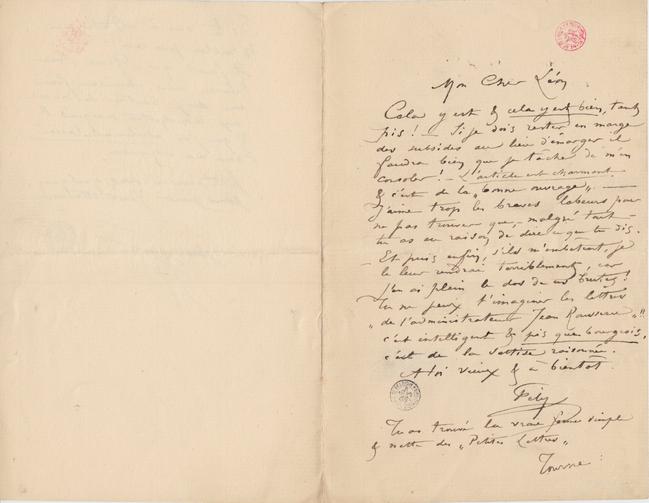 Mon Cher Léon
Cela y est & cela y est bien, tant
pis! — Si je dois rester en marge
des subsides au lieu d'émarger il
faudra bien que je tâche de m'en
consoler! — L'article est charmant
& c'est de la „bonne ouvrage„. —
J'aime trop les braves labeurs pour
ne pas trouver que, malgré tout —
tu as eu raison de dire ce que tu dis.
— Et puis enfin, s'ils m'embêtent, je
le leur rendrai terriblement, car
j'en ai plein le dos de ces brutes!
Tu ne peux t'imaginer les lettres
„de l'administrateur Jean Rousseau„!!
c'est intelligent & pis que bourgeois,
c'est de la sottise raisonnée.
A toi vieux & à bientôt
Tu as trouvé la vraie forme simple
& nette des „Petites Lettres„
Tourne